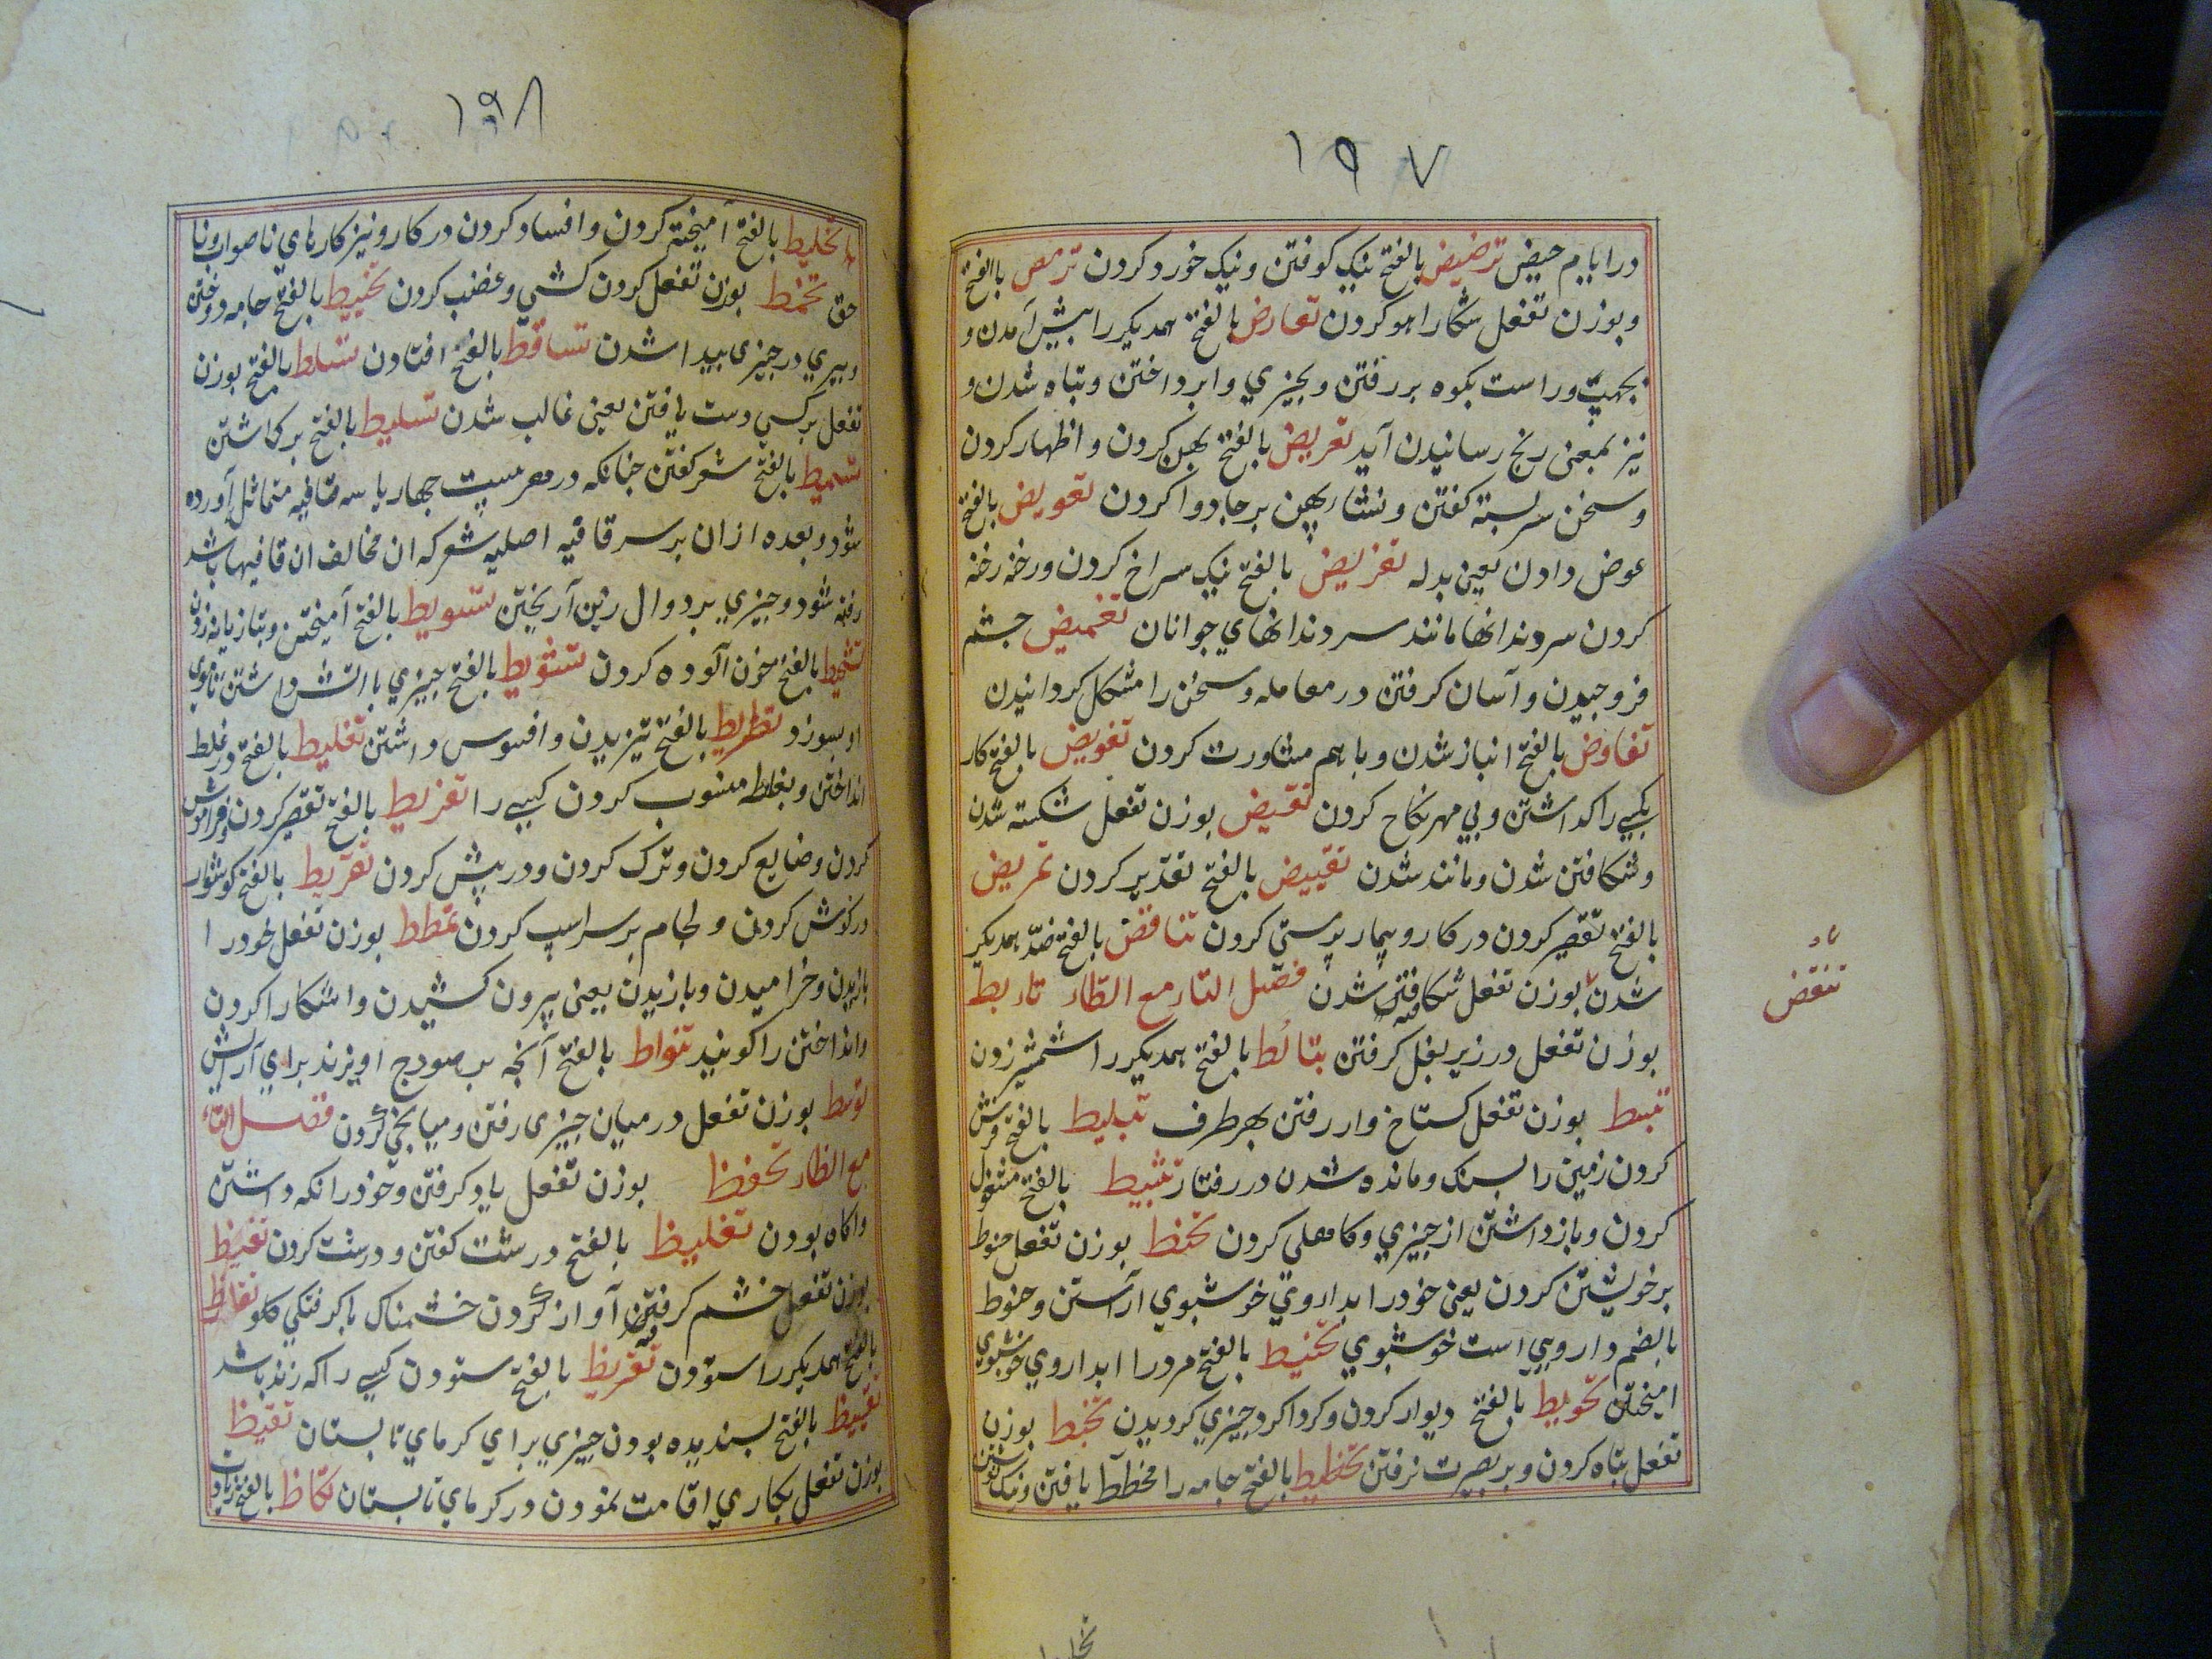 ۱۹۷
در ایام حیض ترضیض بالفتح نیک کوفتن و نیک خورد کردن ترمض باالفتح
و بوزن تفعل شکار اهو کردن تعارض بالفتح همدیکر را پیش آمدن و
بجهپ و راست بکوه بر رفتن و بجیزي وابرداختن و تباه شدن و
نیز بمعنی رنج رسانیدن آید تعریض بالفتح بهن کردن و اظهار کردن
و سخن سربسته کفتن و بهن برجا دوا کردن تعویض بالفتح
عوض دادن یعنی بدله تغریض بالفتح نیک سراخ کردن و رخنه رخنه
کردن سر دندانها مانند سر دندانهاي جوانان تغمیض جشم
فروجیدن و آسان کرفتن در معامله و سخن را مشکل کردانیدن
تفاوض بالفتح انباز شدن و با هم مشاورت کردن تفویض بالفتح کار
بکسے را کداشتن و بي مهر نکاح کردن تقیض بوزن تفعل شکسته شدن
و شکافتن شدن و مانند شدن تقییض بالفتح تقدیر کردن تمریض
بالفتح تقصیر کردن در کار و بیمار پرستي کردن تناقض بالفتح ضدّ همدیکر
شدن بوزن تفعل شکافتن شدن فصل التاء مع الطاء تاربط
بوزن تفعل در زیر بغل کرفتن بتائط بالفتح همدیکر را شمشیر زدن
تبسط بوزن تفعل کستاخ وار رفتن بهر طرف تبلیط بالفتح فرش
کردن زمین را بسنک و مانده شدن در رفتار تثبیط بالفتح مشغول
کردن و بازداشتن از جیزي و کامعلی کردن تحنط بوزن تفعل حنوط
بر خویشتن کردن یعنی خود را بداروي خوشبوي آراستن و حنوط
بالضم داروي است خوشبوي تحنیط بالفتح مرد را ابداروي خوشبوي
امیختن تحویط بالفتح دیوار کردن و کرداکرد جیزي کردیدن تخبط بوزن
تفعل تباه کردن و بر بصیرت نرفتن تخطیط بالفتح جامه را مخطّط یافتن و نیک نوشتن
تنقض
۱۹۸
تخلیط بالفتح آمیخته کردن و افساد کردن در کار و نیز کارهاي ناصواب و نا
حق تخمط بوزن تفعل کردن کشي و غضب کردن تخییط بالفتح جامه دوختن
و بیري در جیزي بیدا شدن تساقط بالفتح افتادن تسلط بالفتح بوزن
تفعل بر کسي دست یافتن یعنی غالب شدن تسلیط بالفتح بر کماشتن
تسمیط بالفتح شعر کفتن جنانکه در هر بیت جهار یا سه قافیه متماثل آورده
شود و بعده از ان بر سر قافیه اصلیه شعر که ان مخالف ان قافیها باشد
رفته شود و جیزي بر دوال زین آویختن تسویط بالفتح آمیختن و بتازیانه زدن
تشحیط بالفتح بخون آلوده کردن تشویط بالفتح جیزي با اتش داشتن تا موي
او بسوزد تطریط بالفتح تیزیدن و افسوس داشتن تغلیط بالفتح در غلط
انداختن و بغلط منسوب کردن کسیے را تفریط بالفتح تقصیر کردن و فراموش
کردن و ضایع کردن و ترک کردن و در پیش کردن تقریط بالفتح کوشوار
در کوش کردن و لجام بر سر اسپ کردن تمطط بوزن تفعل خود را
بازیدن و خرامیدن و بازیدن یعنی بیرون کشیدن و اشکارا کردن
و انداختن را کویند تنواط بالفتح آنجه بر هودج اویزند براي آرایش
توسط بوزن تفعل در میان جیزي رفتن و میانجي کردن فصل التاء
مع الظاء تحفظ بوزن تفعل یاد کرفتن و خود را نکه داشتن
و اکاه بودن تغلیظ بالفتح درشت کفتن و درشت کردن تغیظ
بوزن تفعل خشم کرفتن آواز کردن خشمناک با کرفتکي کلو تقارظ
بالفتح همدیکر را ستودن تقریظ بالفتح ستودن کسیے را که زنده باشد
تقییظ بالفتح بسندیده بودن جیزي براي کرماي تابستان تقیظ
بوزن تفعل بکاري اقامت نمودن در کرماي تابستان تکاظ بالفتح